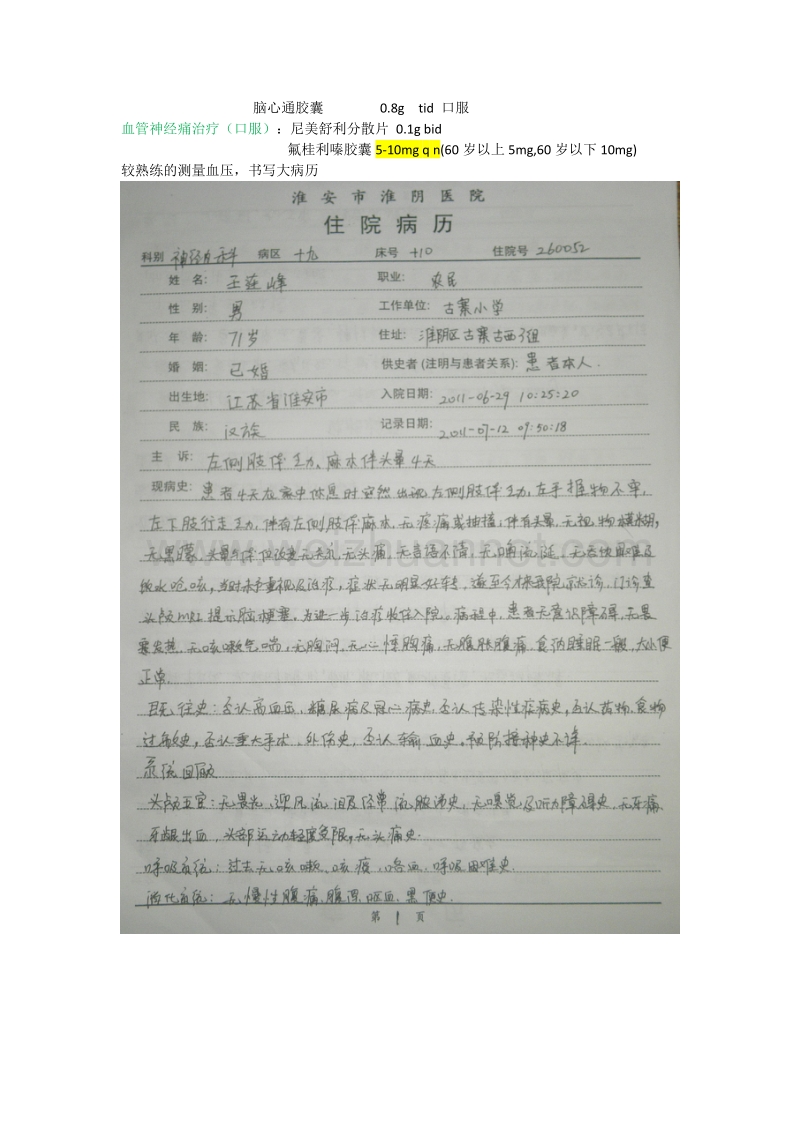 脑心通胶囊 0.8g tid 口服
血管神经痛治疗（口服）：尼美舒利分散片 0.1g bid
氟桂利嗪胶囊 5-10mg q n(60 岁以上 5mg,60 岁以下 10mg)
较熟练的测量血压，书写大病历
淮安市淮阴医院
住院病历
科别 神经内科 病区 十九 床号 +10 住院号 260052
姓 名: 王 峰 职业: 农民
性 别: 男 工作单位: 古寨小学
年 龄: 71岁 住址: 淮阴区古寨古西3组
婚 姻: 已婚 供史者 (注明与患者关系): 患者本人.
出生地: 江苏省淮安市 入院日期: 2011-06-29 10:25:20
民 族: 汉族 记录日期: 2011-07-12 09:50:18
主 诉: 左侧肢体乏力、麻木伴头晕4天
现病史: 患者4天在家中休息时突然出现左侧肢体乏力,左手握物不牢,
左下肢行走乏力,伴有左侧肢体麻木,无疼痛或抽搐,伴有头晕,无视物模糊,
无黑朦,头晕与体位改变无关,无头痛,无言语不清,无吞饮困难及
饮水呛咳,当时未予重视及治疗,症状无明显好转,遂至今来我院就诊,门诊查
头颅MRI提示脑梗塞,为进一步治疗收住入院。病程中,患者无意识障碍,无畏
寒发热,无咳嗽气喘,无胸闷,无心悸胸痛,无腹胀腹痛,食纳睡眠一般,大小便
正常.
既往史:否认高血压,糖尿病及冠心病史,否认传染性疾病史,否认药物、食物
过敏史,否认重大手术、外伤史,否认输血史,预防接种史不详.
系统回顾
头颅五官:无畏光、迎风流泪及经常流脓涕史,无嗅觉及听力障碍史,无牙痛、
牙龈出血,头部运动轻度受限,无头痛史.
呼吸系统:过去无咳嗽、咳痰、咯血、呼吸困难史.
消化系统:无慢性腹痛、腹泻、呕血、黑便史.
第 1 页
www.weizhuannet.com